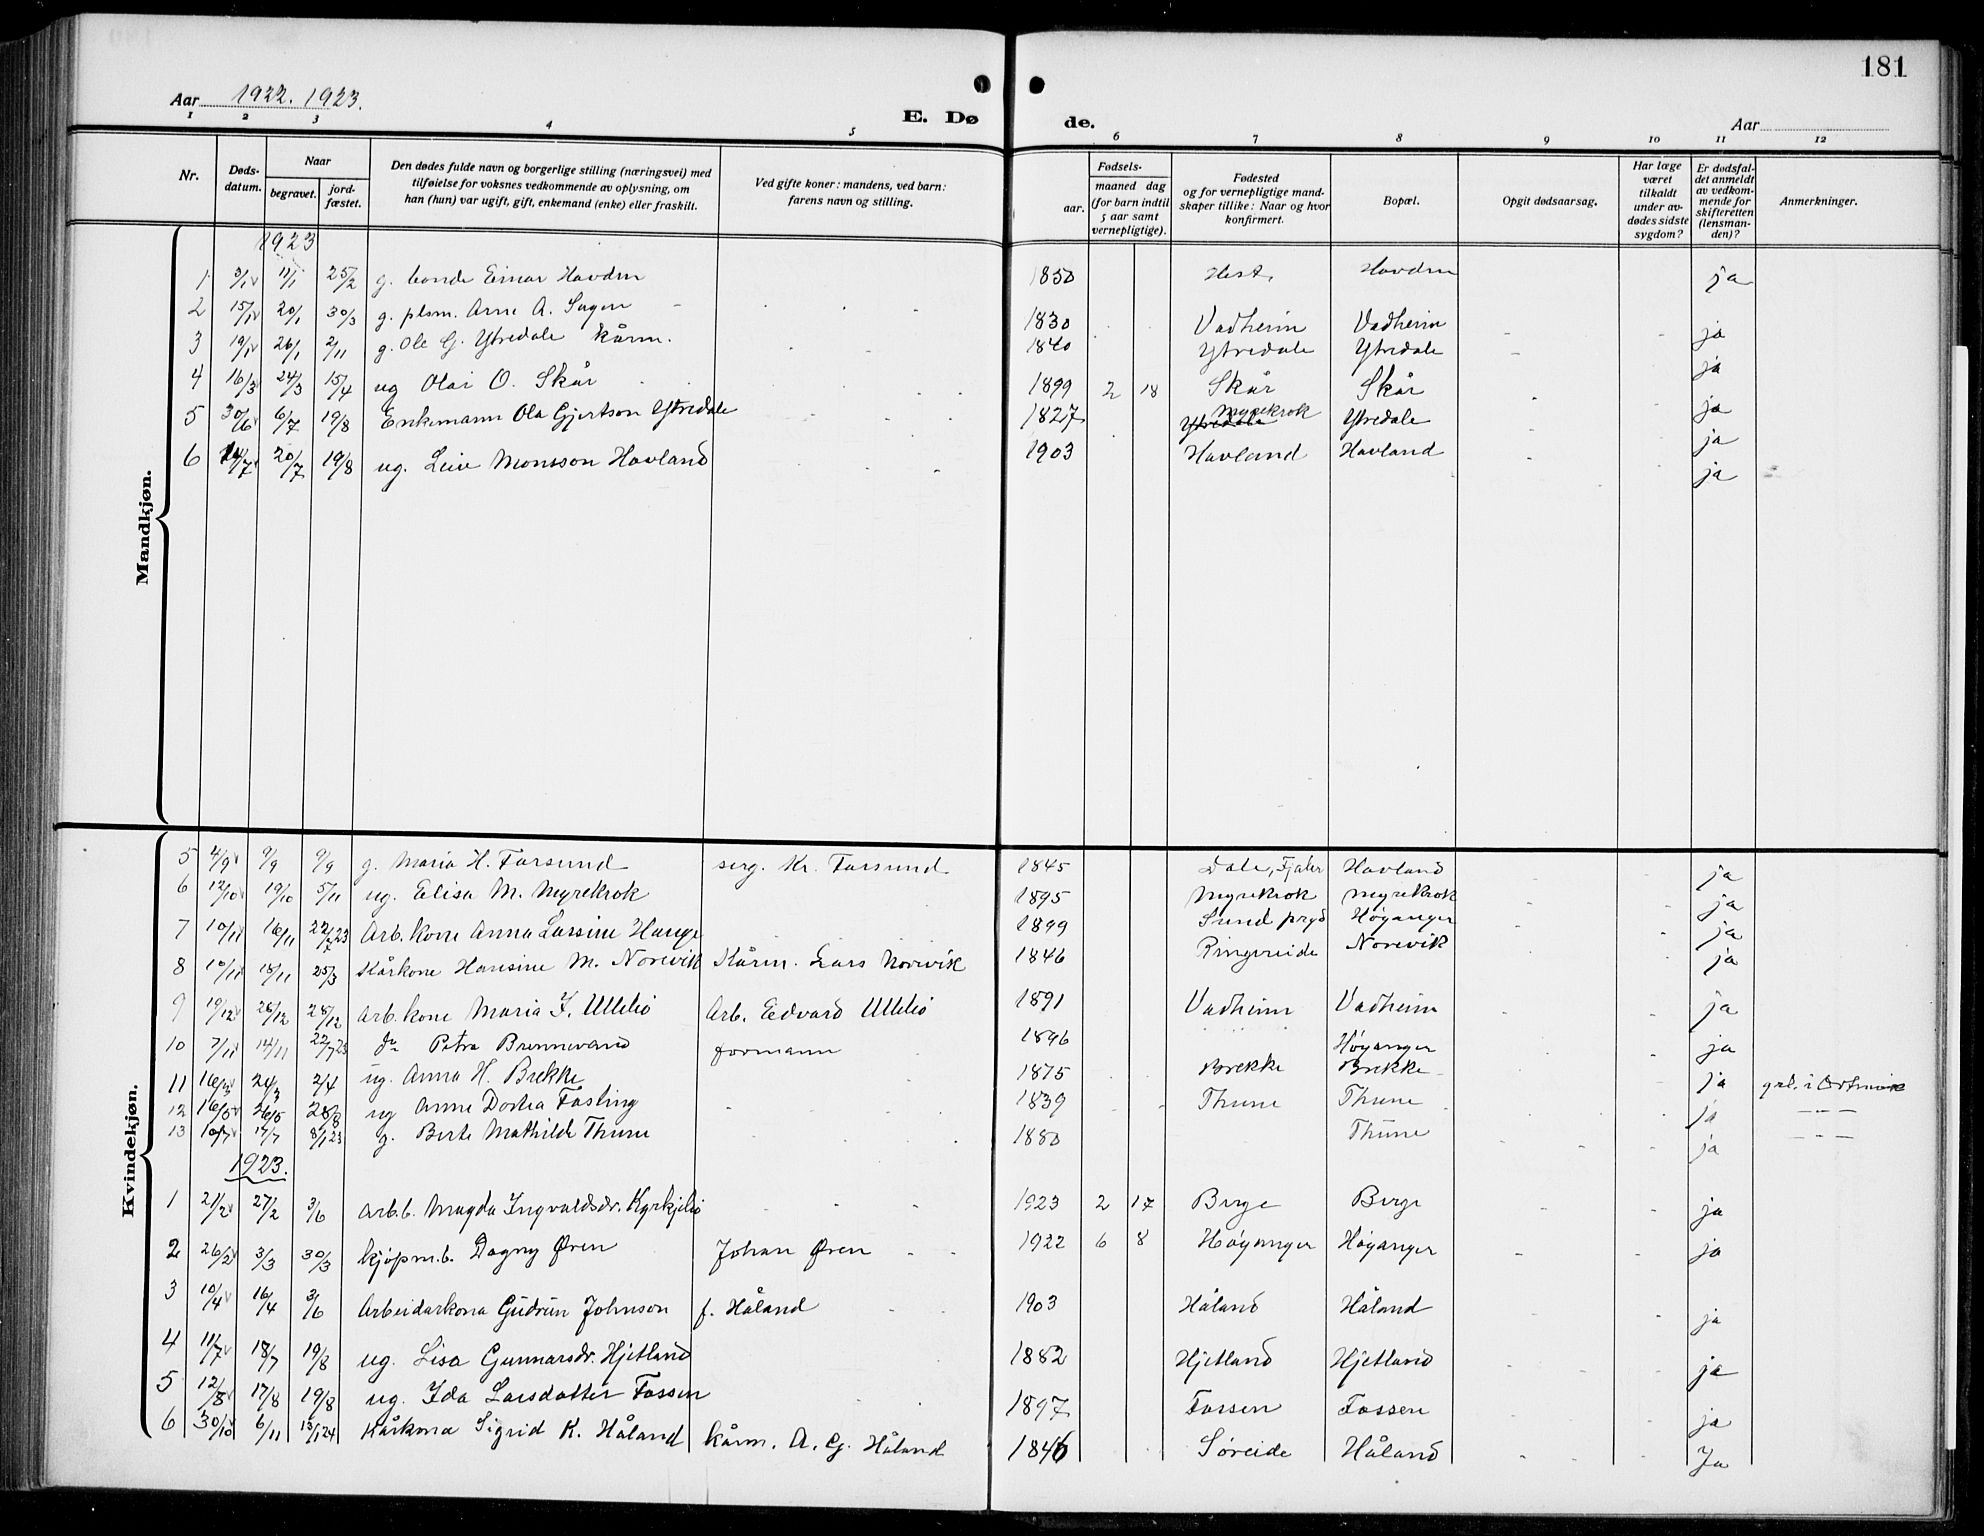 181
Aar 1922. 1923.
E. Døde.
Aar
1 2 3 4 5 6 7 8 9 10 11 12
Nr.
Døds-datum.
Naar
begravet.
jord-fæstet.
Den dødes fulde navn og borgerlige stilling (næringsvei) med
tilføielse for voksnes vedkommende av oplysning, om
han (hun) var ugift, gift, enkemand (enke) eller fraskilt.
Ved gifte koner: mandens, ved barn:
farens navn og stilling.
Fødsels-
aar.
maaned dag
(for barn indtil
5 aar samt
vernepligtige).
Fødested
og for vernepligtige mand-
skaper tillike: Naar og hvor
konfirmert.
Bopæl.
Opgit dødsaarsag.
Har læge
været
tilkaldt
under av-
dødes sidste
sygdom?
Er dødsfal-
det anmeldt
av vedkom-
mende for
skifteretten
(lensman-
den)?
Anmerkninger.
Mandkjøn.
1923
1 3/1 11/1 25/2 g. bonde Einar Havdm 1850 Hest, Havdm ja
2 15/1 20/1 30/3 g. plsm. Arne A. Sagen 1830 Vadheim Vadheim ja
3 19/1 26/1 2/11 g. Ole G. Ytredale kårm. 1840 Ytredale Ytredale ja
4 16/3 24/3 15/4 ug Olai O. Skår 1899 2 18 Skår Skår ja
5 30/6 6/7 19/8 Enkemann Ola Gjertson Ytredale 1827 Ytredale Myrekrok Ytredale ja
6 14/7 20/7 19/8 ug. Leiv Monsson Havland 1903 Havland Havland ja
Kvindekjøn.
5 4/9 9/9 9/9 g. Maria H. Farsund serg. Kr. Farsund 1845 Dale, Fjaler Havland ja
6 12/10 19/10 5/11 ug. Elisa M. Myrekrok 1895 Myrekrok Myrekrok ja
7 10/11 16/11 22/7 23 Arb. kone Anna Larsine Hauge 1899 Sund prgd Høyanger ja
8 10/11 18/11 25/3 Kårkone Hansine M. Norevik Kårm. Lars Norevik 1846 Ringereide Norevik ja
9 19/12 28/12 28/12 Arb. kone Maria J. Ullebø Arb. Edvard Ullebø 1891 Vadheim Vadheim ja
10 7/11 14/11 22/7 23 do Petra Brennevand formann 1896 Høyanger ja
11 16/3 24/3 2/4 ug. Anna H. Brekke 1875 Brekke Brekke ja
12 16/5 26/5 28/8 ug Anne Dortea Fasting 1839 Thune Thune ja
13 10/7 17/7 8/1 23 g. Berte Mathilde Thune 1880 Thune ja
grl. i Ortnevik
– " –
– – –
1923.
1 21/2 27/2 3/6 Arb.b. Magda Ingvaldsdr. Kyrkjebø 1923 2 17 Berge Berge ja
2 26/2 3/3 30/3 kjøpm.b. Dagny Øren Johan Øren 1922 6 8 Høyanger Høyanger ja
3 10/4 16/4 3/6 Arbeidarkona Gudrun Johnson f. Håland 1903 Håland Håland ja
4 11/7 18/7 19/8 ug. Lisa Gunnarsdr. Hjetland 1882 Hjetland Hjetland ja
5 12/8 17/8 19/8 ug. Ida Larsdatter Fossen 1897 Fossen Fossen ja
6 30/10 6/11 13/1 24 Kårkona Sigrid K. Håland kårm. A. G. Håland 1846 Søreide Håland Ja